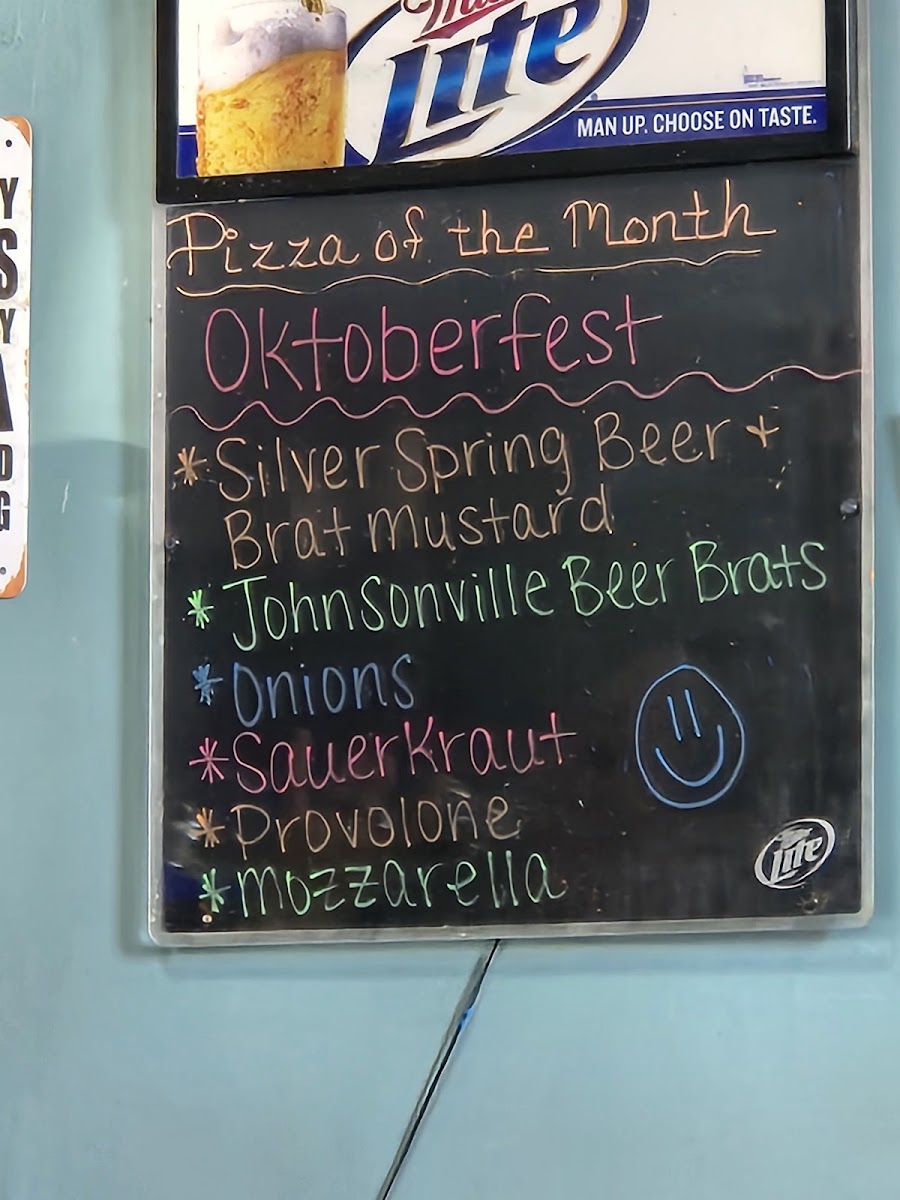 Lite
MAN UP. CHOOSE ON TASTE.
Pizza of the Month
Oktoberfest
* Silver Spring Beer +
Brat Mustard
* Johnsonville Beer Brats
* Onions
* Sauerkraut
* Provolone
* Mozzarella
Lite
Y
S
Y
A
D
G